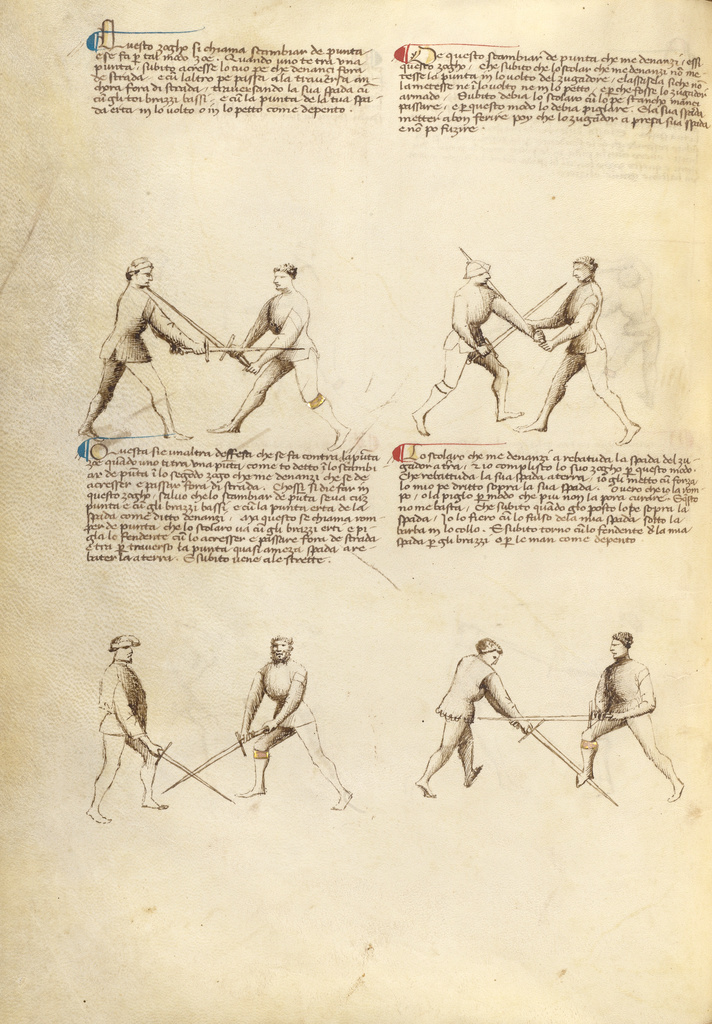 Questo zogho si chiama scambiar de punta
e se fa p tal modo zoe. Quando uno te tra una
punta subito acresse lo tuo pe che denanci fora
de strada e cu l altro pe passa a la traversa an-
chora fora di strada, traversando la sua spada cu
cu gli toi brazzi bassi e cu la punta de la tua spa-
da erta in lo volto o in lo petto come depento.
De questo scambiar de punta che me denanzi, essi
questo zogho, Che subito che lo scolar che me denanzi no me-
tesse la punta in lo volto del zugadore, e lassasela si che no
la metesse ne i lo volto ne in lo petto, e p che fosse lo zugador
armado, Subito debia lo scolaro cu lo pe stancho inanci
passare, e p questo modo lo debia pigliare. E la sua spada
metter a bon ferire poy che lo zugador a presa sua spada
e no po fuzire.
Questa si e un altra deffesa che se fa contra la puta
zoe quado uno ti tra una puta, come to detto i lo scambi-
ar de puta i lo segodo zogo che me denanzi che se de
acresser e passar fora di strada. Chossi si die far in
questo zogho, salvo che lo scambiar de puta se va cu
punta e cu gli brazzi bassi, e cu la punta erta de la
spada come ditto denanzi, Ma questo se chiama rom-
per de punta, che lo scolaro va cu gli brazzi erti e pi-
glia lo fendente cu lo acresser e passare fora de strada
e tra p traverso la punta quasi a meza spada a re-
bater la a terra. E subito vene a le strette.
Lo scolaro che me denanzi a rebatuda la spada del zu-
gador a tra, & io complisco lo suo zogho p questo modo.
Che rebattuda la sua spada a terra, io gli metto cu forza
lo mio pe dritto sopra la sua spada. Overo che io la rom-
po, o la piglo p modo che piu non la pora curare. E questo
no me basta, Che subito quado glo posto lo pe sopra la
spada, Io lo fiero cu lo falso de la mia spada sotto la
barba in lo collo. E subito torno cu lo fendente d la mia
spada p gli brazzi o p le man come depento.